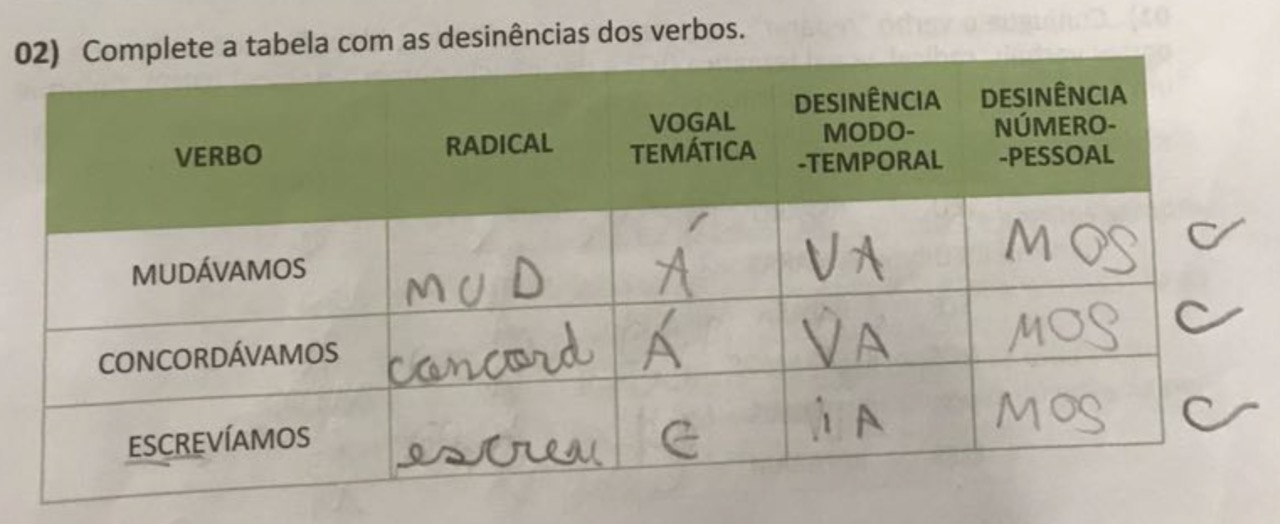 02) Complete a tabela com as desinências dos verbos.
VERBO RADICAL VOGAL TEMÁTICA DESINÊNCIA MODO- -TEMPORAL DESINÊNCIA NÚMERO- -PESSOAL
MUDÁVAMOS MUD Á VA MOS C
CONCORDÁVAMOS concord Á VA MOS C
ESCREVÍAMOS escrev E iA MOS C